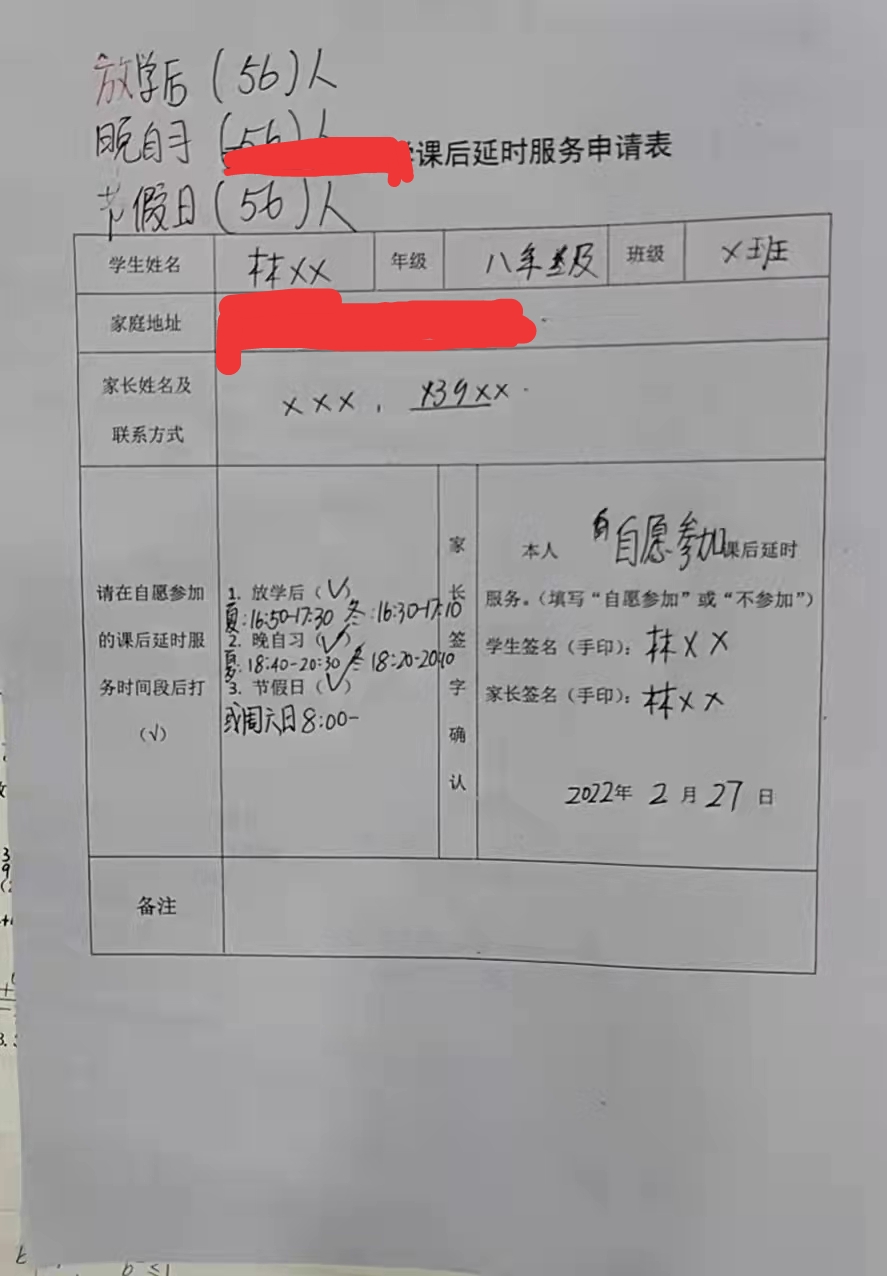 放学后(56)人
晚自习(56)人
学课后延时服务申请表
节假日(56)人
学生姓名 林xx 年级 八年级 班级 x班
家庭地址
家长姓名及
联系方式
xxx, x39xx.
请在自愿参加
的课后延时服
务时间段后打
(√)
1. 放学后(√)
夏:16:50-17:30 冬:16:30-17:10
2. 晚自习(√)
夏:18:40-20:30 冬18:20-20:10
3. 节假日(√)
或周六日8:00-
家长签字确认
本人 自愿参加课后延时
服务。(填写“自愿参加”或“不参加”)
学生签名(手印):林xx
家长签名(手印):林xx
2022年2月27日
备注